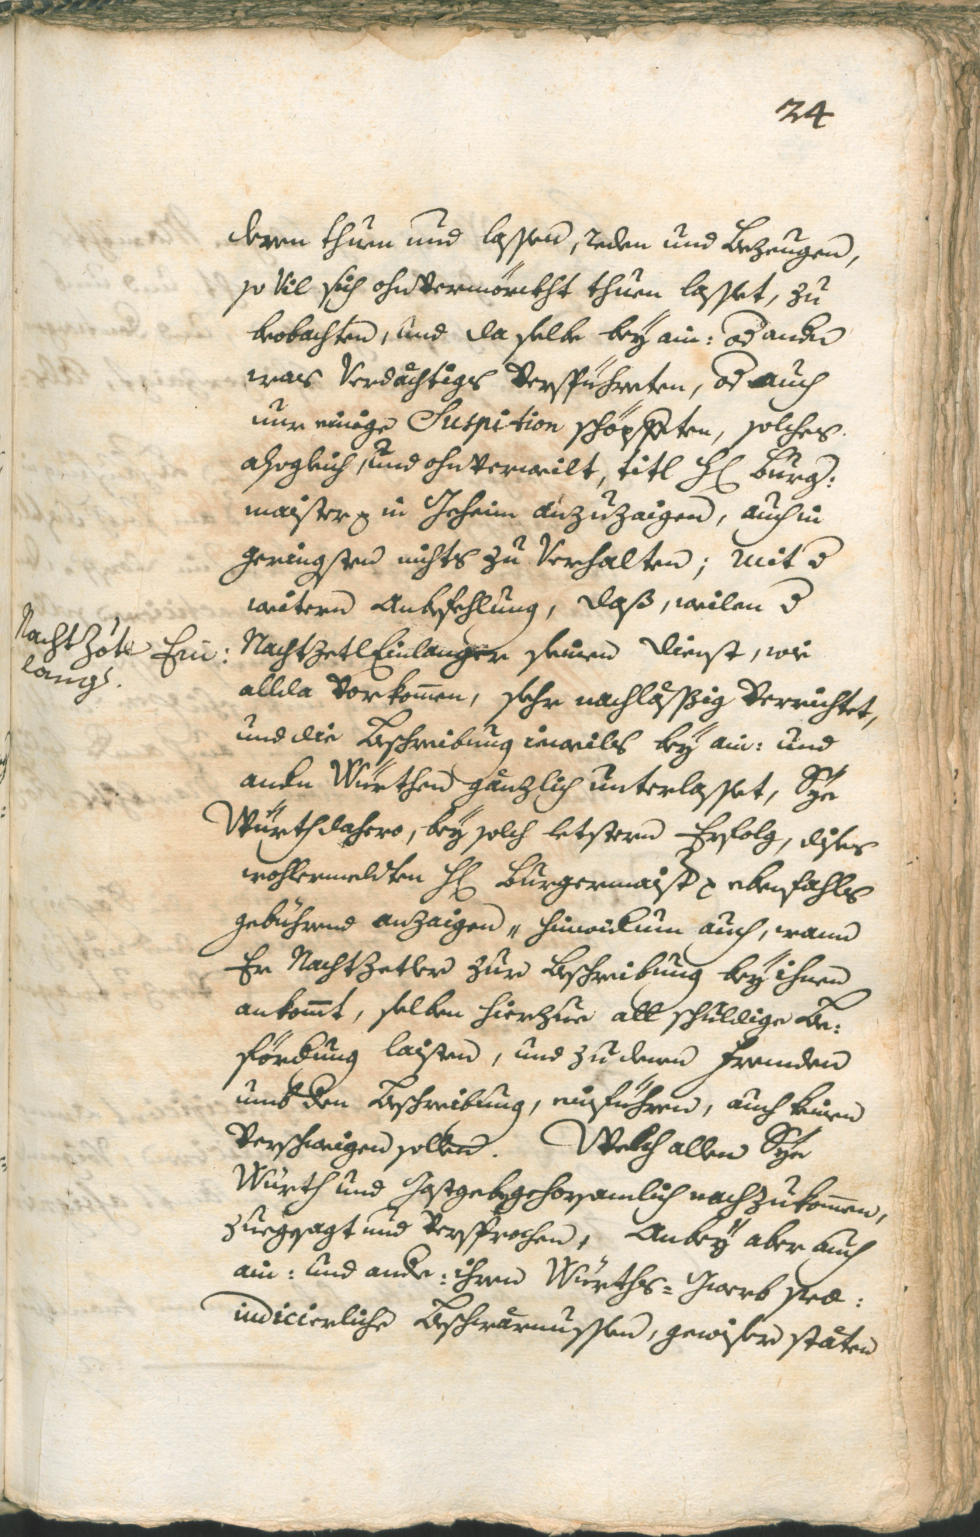 24
deren thuen und lassen, reden und bezeugen,
so vil sich ohnvermörckht thuen lasset, zu
beobachten, und da selbe bey ain: od andern
was verdächtigs verspühreten, od auch
nur einige Suspition schöpffeten, solches
alsogleich, und ohnverweilt, titl H. Burger:
maister in Geheim anzuzaigen, auch in
geringsten nichts zu verhalten; mit d
weitern Anbefehlung, daß, weilen d
Nacht Zötl Ein:
langs.
NachtZetl Einlanger seinen Dienst, wie
allda vorkommen, sehr nachlässig verrichtet,
und die Beschreibung ieweils bey ain: und
andern Würthen gäntzlich unterlasset, Sye
Würth dahero, bey solch letstern Erfolg, dises
wohlermeldten H. Burgermaister ebenfahls
gebührend anzaigen, hinwiderum auch, wann
Er NachtZetler zur Beschreibung bey ihnen
ankommt, selben hierzue all schuldige Be:
förderung laisten, und zu denen Fremden
umb den Beschreibung, einführen, auch keinen
verschweigen sollen. Welch allen Sye
Würth und Gastgeb gehorsamlich nachzukommen,
zuegesagt und versprochen, Anbey aber auch
ain: und andere: ihren Würths=Gwerb præ:
iudicierliche Beschwärnussen, gewiser